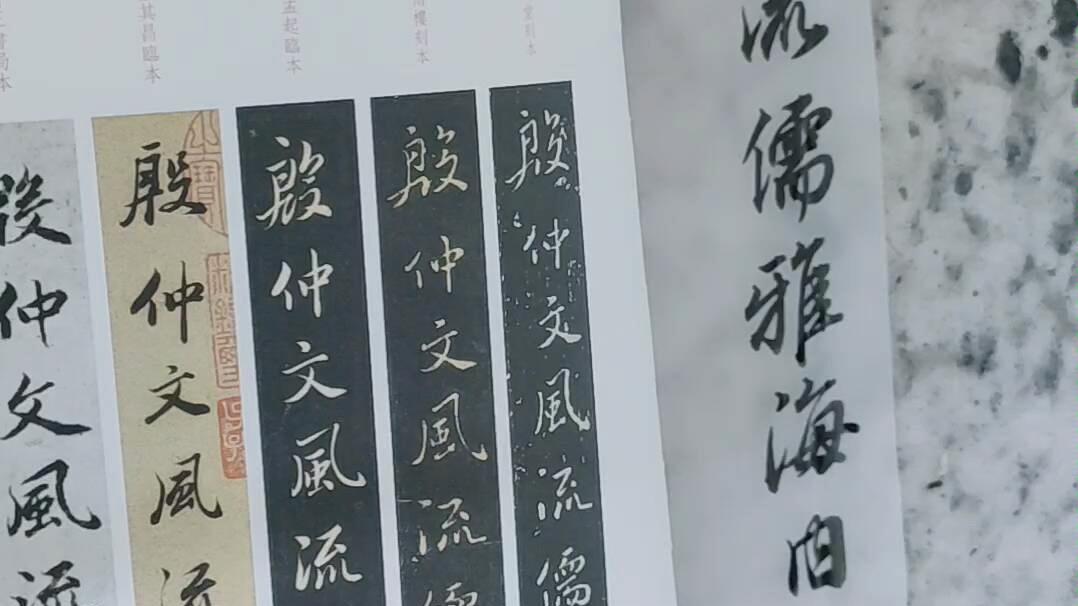 流儒雅海内
堂刻本
殷仲文風流儒
樓刻本
殷仲文風流儒
孟起臨本
殷仲文風流
其昌臨本
殷仲文風流
書局本
仲文風流